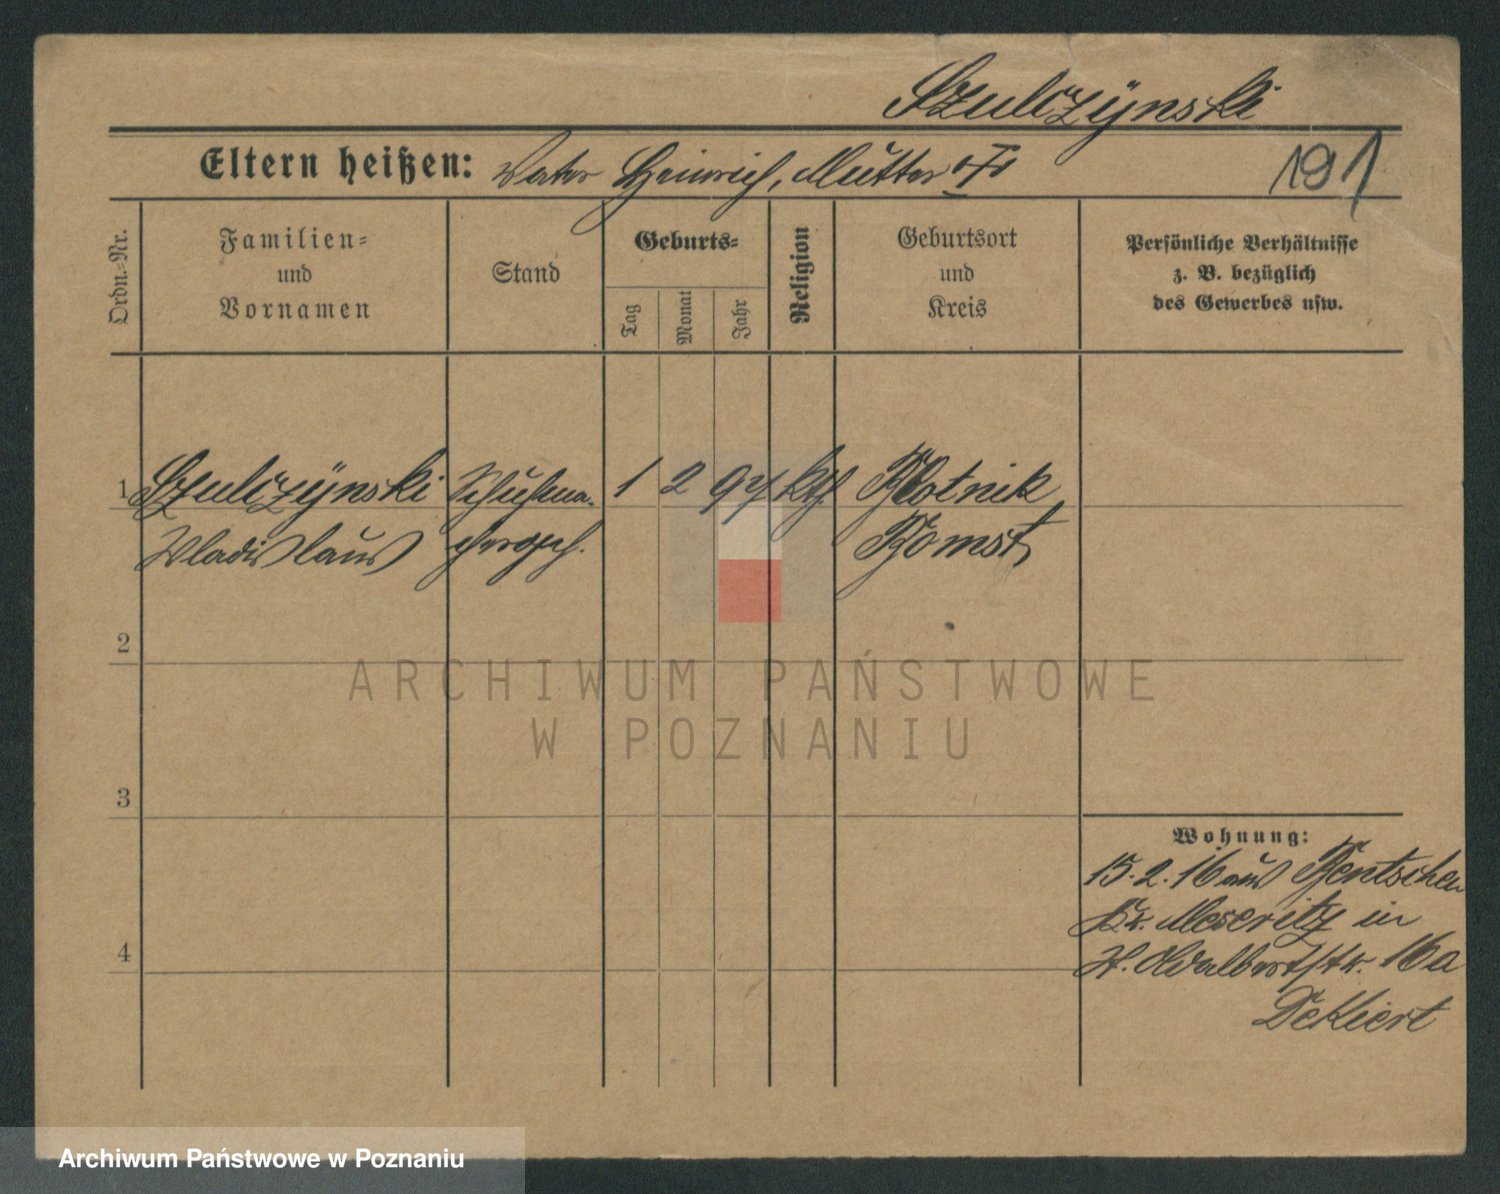 Szulczÿnski
Eltern heißen: Vater Heinrich, Mutter
191
Ordn.=Nr.
Familien=
und
Vornamen
Stand
Geburts=
Tag
Monat
Jahr
Religion
Geburtsort
und
Kreis
Persönliche Verhältnisse
z. B. bezüglich
des Gewerbes usw.
1 Szulczÿnski Schuhma- 1 2 97 kth Blotnik
Wladislaus chergeh. Bomst
2
3
4
Wohnung:
15.2.16 aus Bentschen
Kr. Meseritz in
St. Adalbertstr. 16a
Dekiert
ARCHIWUM PAŃSTWOWE
W POZNANIU
Archiwum Państwowe w Poznaniu